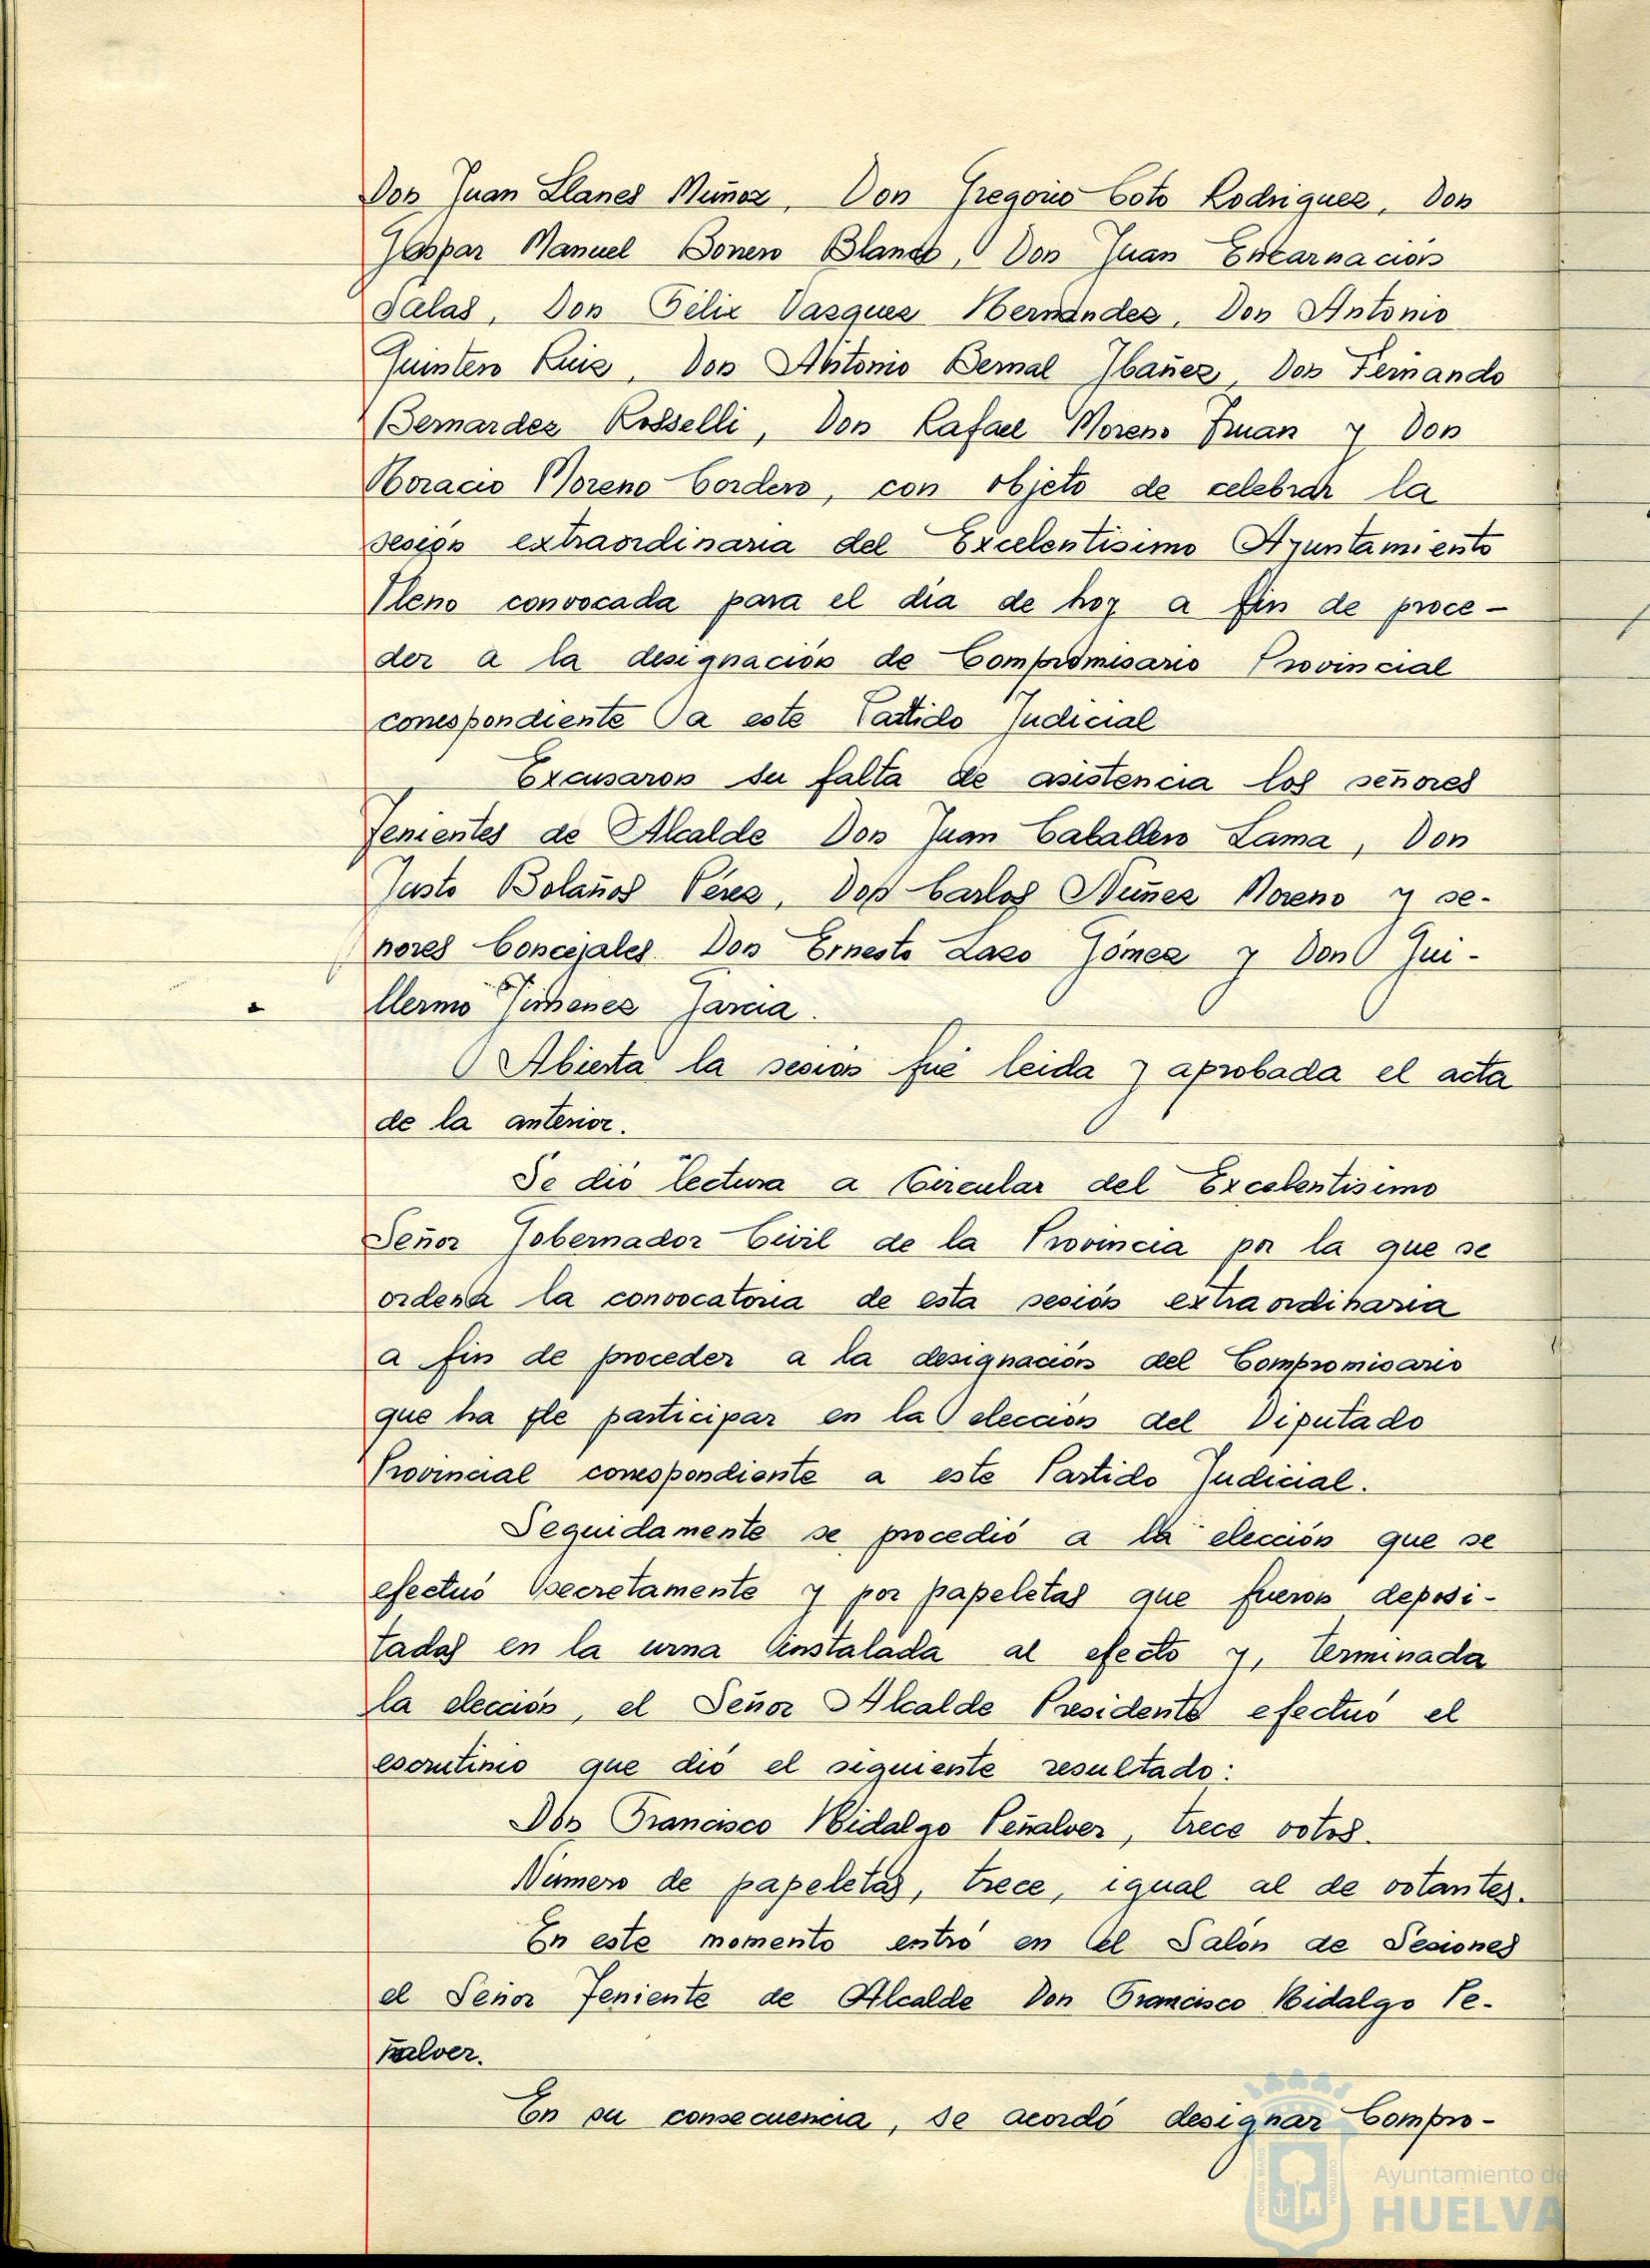 Don Juan Llanes Muñoz, Don Gregorio Coto Rodriguez, Don
Gaspar Manuel Bonero Blanco, Don Juan Encarnación
Salas, Don Félix Vazquez Hernández, Don Antonio
Quintero Ruiz, Don Antonio Bernal Ibañez, Don Fernando
Bernardez Rosselli, Don Rafael Moreno y Don
Horacio Moreno Cordero, con objeto de celebrar la
sesión extraordinaria del Excelentisimo Ayuntamiento
Pleno convocada para el dia de hoy a fin de proce-
der a la designación de Compromisario Provincial
correspondiente a este Partido Judicial
Excusaron su falta de asistencia los señores
Tenientes de Alcalde Don Juan Caballero Lama, Don
Justo Bolaños Pérez, Don Carlos Nuñez Moreno y se-
ñores Concejales Don Ernesto Lazo Gómez y Don Gui-
llermo Jimenez Garcia.
Abierta la sesión fué leida y aprobada el acta
de la anterior.
Se dió lectura a Circular del Excelentisimo
Señor Gobernador Civil de la Provincia por la que se
ordena la convocatoria de esta sesión extraordinaria
a fin de proceder a la designación del Compromisario
que ha de participar en la elección del Diputado
Provincial correspondiente a este Partido Judicial.
Seguidamente se procedió a la elección que se
efectuó secretamente y por papeletas que fueron deposi-
tadas en la urna instalada al efecto y, terminada
la elección, el Señor Alcalde Presidente efectuó el
escrutinio que dió el siguiente resultado:
Don Francisco Hidalgo Peñalver, trece votos.
Número de papeletas, trece, igual al de votantes.
En este momento entró en el Salón de Sesiones
el Señor Teniente de Alcalde Don Francisco Hidalgo Pe-
ñalver.
En su consecuencia, se acordó designar Compro-
Ayuntamiento de
HUELVA